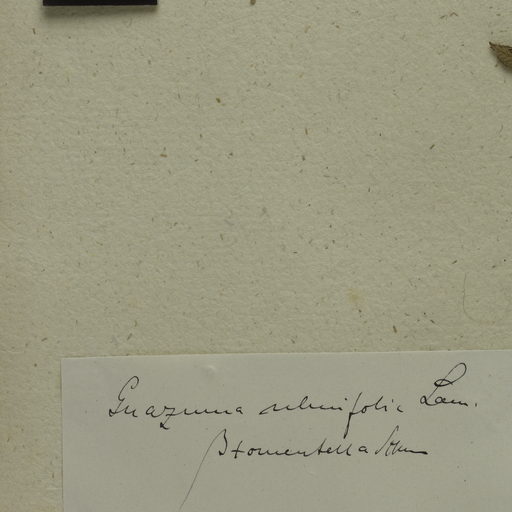 Guazuma ulmifolia Lam.
β tomentella Schum